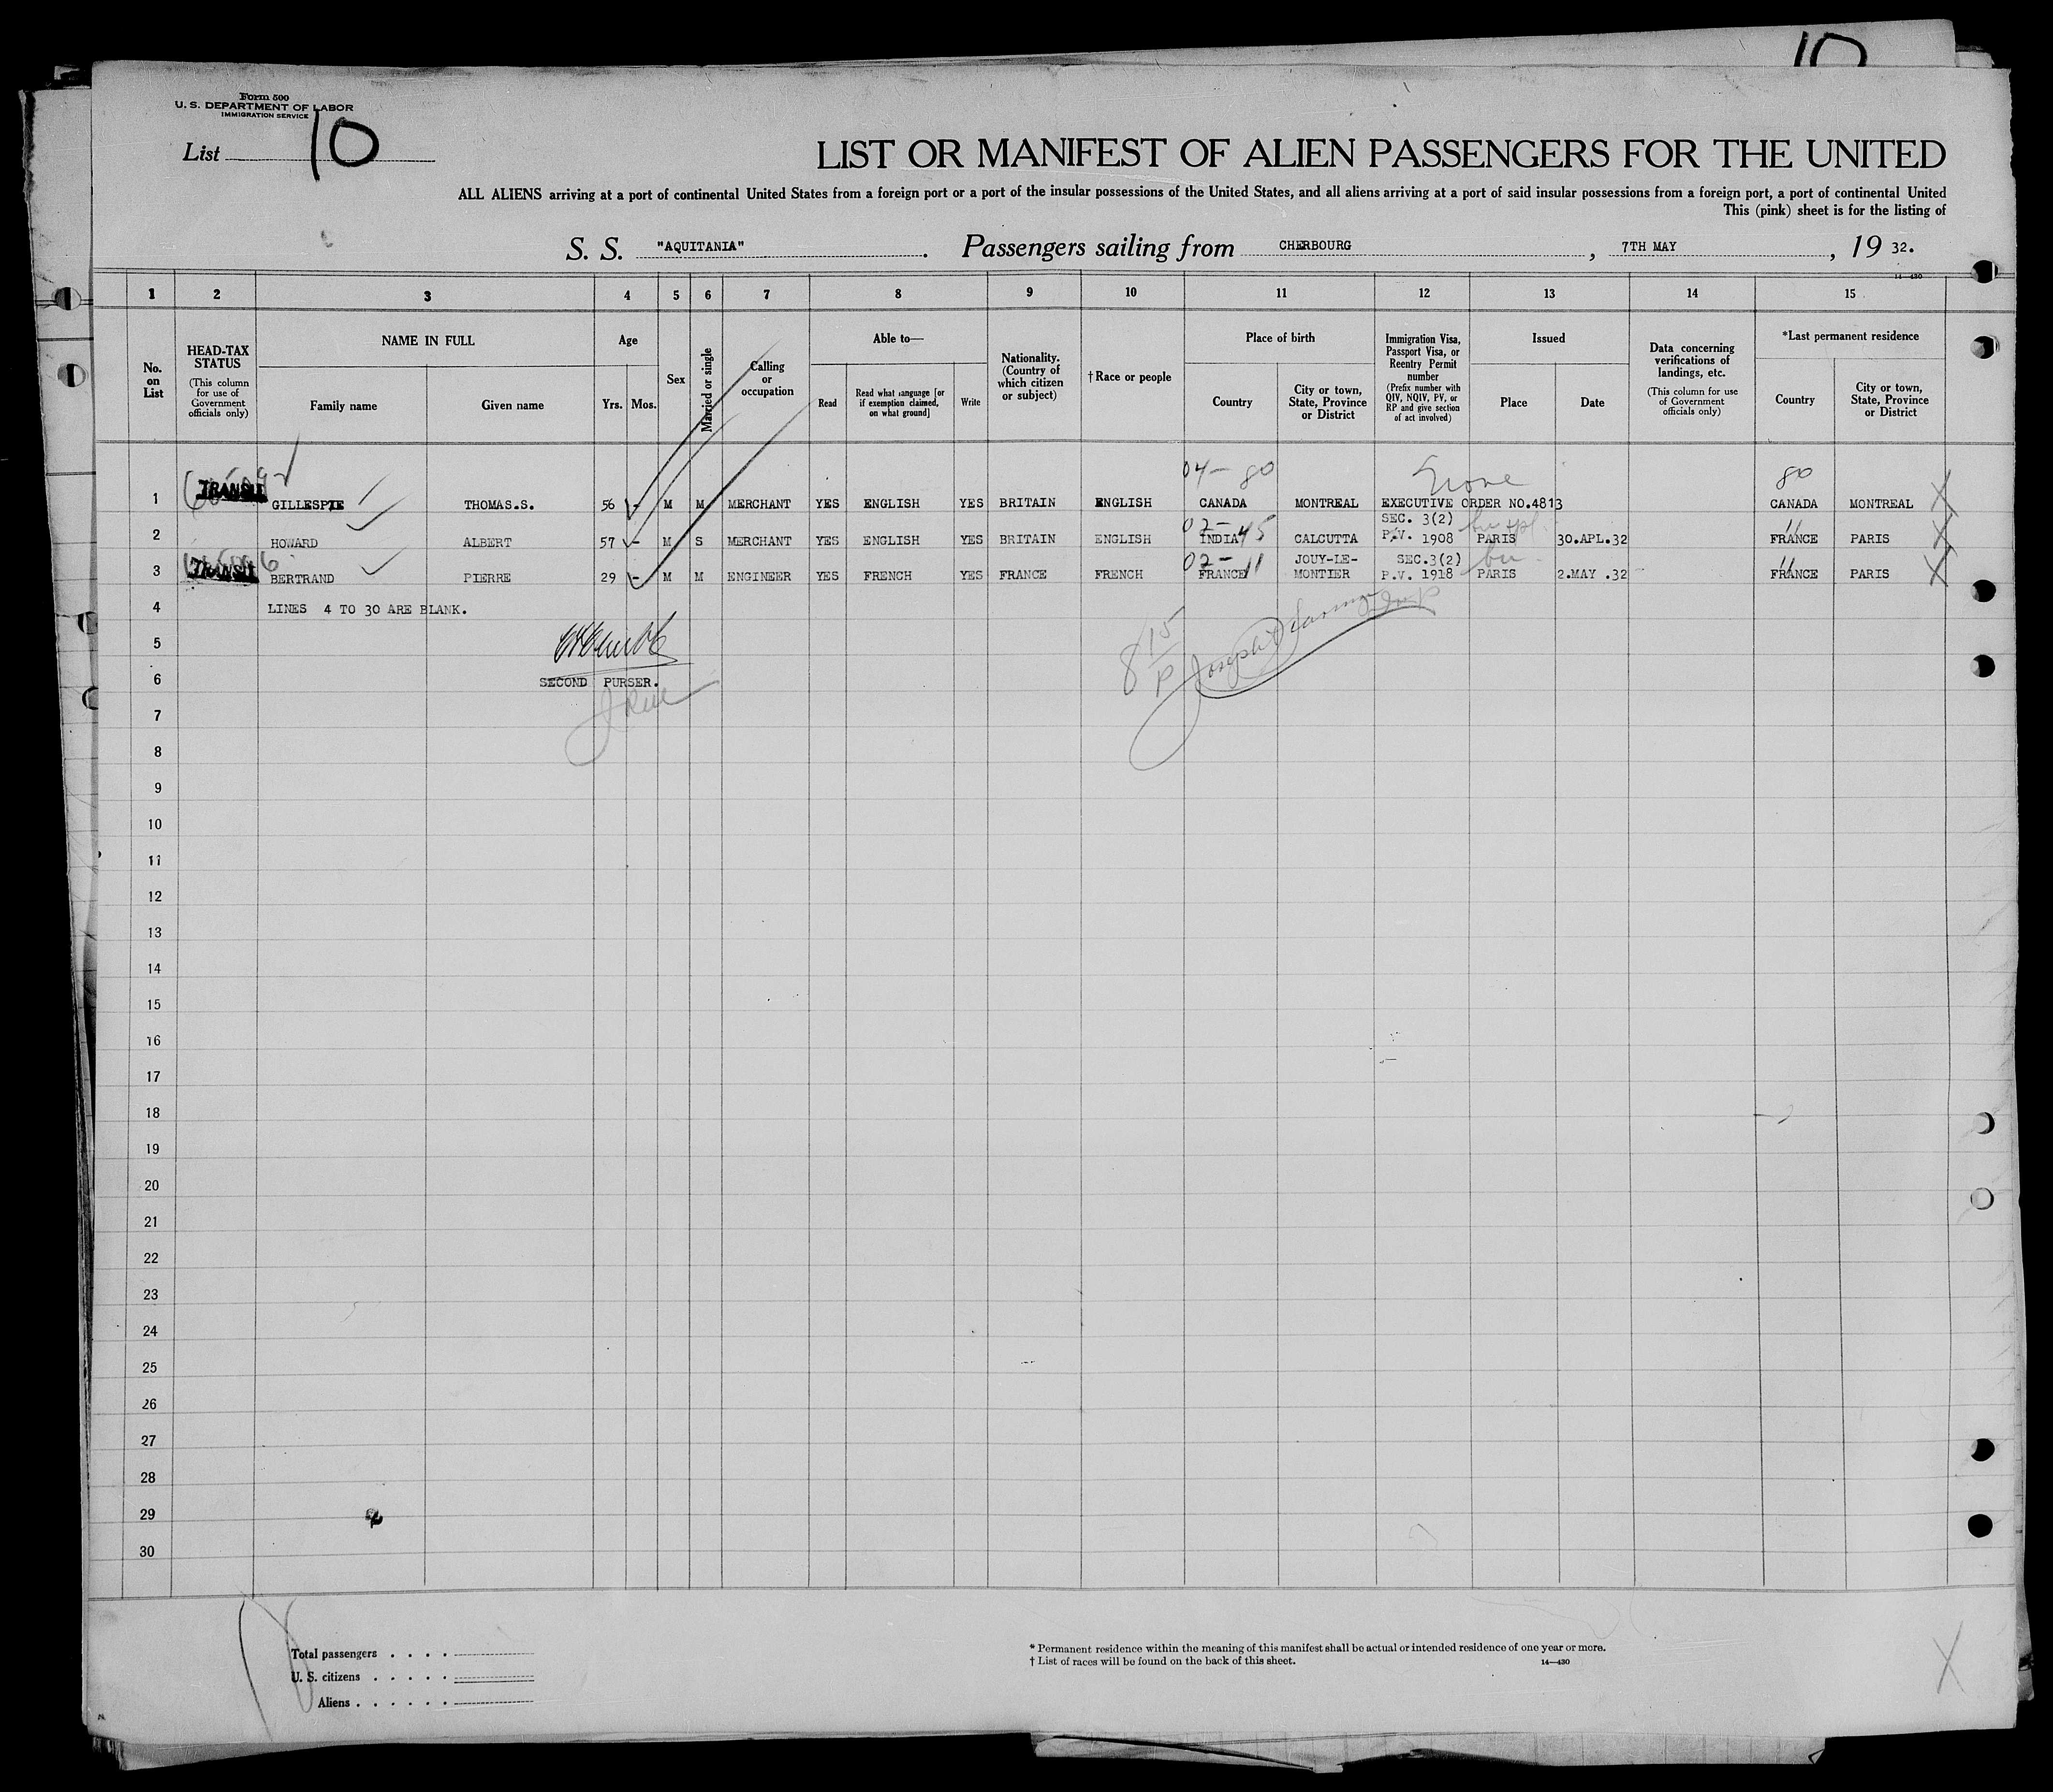 10
Form 500
U. S. DEPARTMENT OF LABOR
IMMIGRATION SERVICE
List 10
LIST OR MANIFEST OF ALIEN PASSENGERS FOR THE UNITED
ALL ALIENS arriving at a port of continental United States from a foreign port or a port of the insular possessions of the United States, and all aliens arriving at a port of said insular possessions from a foreign port, a port of continental United
This (pink) sheet is for the listing of
S. S. "AQUITANIA". Passengers sailing from CHERBOURG, 7TH MAY, 19 32.
14—430
1 2 3 4 5 6 7 8 9 10 11 12 13 14 15
No. on List
HEAD-TAX STATUS (This column for use of Government officials only)
NAME IN FULL
Family name Given name
Age
Yrs. Mos.
Sex
Married or single
Calling or occupation
Able to—
Read
Read what language [or if exemption claimed, on what ground]
Write
Nationality. (Country of which citizen or subject)
†Race or people
Place of birth
Country
City or town, State, Province or District
Immigration Visa, Passport Visa, or Reentry Permit number (Prefix number with QIV, NQIV, PV, or RP and give section of act involved)
Issued
Place Date
Data concerning verifications of landings, etc. (This column for use of Government officials only)
*Last permanent residence
Country
City or town, State, Province or District
04— 80 None 80
1 TRANSIT GILLESPIE THOMAS.S. 56 - M M MERCHANT YES ENGLISH YES BRITAIN ENGLISH CANADA MONTREAL EXECUTIVE ORDER NO.4813 CANADA MONTREAL X
02— 45 SEC. 3(2) 11
2 HOWARD ALBERT 57 - M S MERCHANT YES ENGLISH YES BRITAIN ENGLISH INDIA CALCUTTA P.V. 1908 PARIS 30.APL.32 FRANCE PARIS X
02— 11 JOUY-LE- SEC.3(2) 11
3 TRANSIT BERTRAND PIERRE 29 - M M ENGINEER YES FRENCH YES FRANCE FRENCH FRANCE MONTIER P.V. 1918 PARIS 2.MAY .32 FRANCE PARIS X
4 LINES 4 TO 30 ARE BLANK.
5
8 15 P
6 SECOND PURSER.
7
8
9
10
11
12
13
14
15
16
17
18
19
20
21
22
23
24
25
26
27
28
29
30
Total passengers . . . .
U. S. citizens . . . . .
Aliens . . . . . .
* Permanent residence within the meaning of this manifest shall be actual or intended residence of one year or more.
† List of races will be found on the back of this sheet.
14—430
X